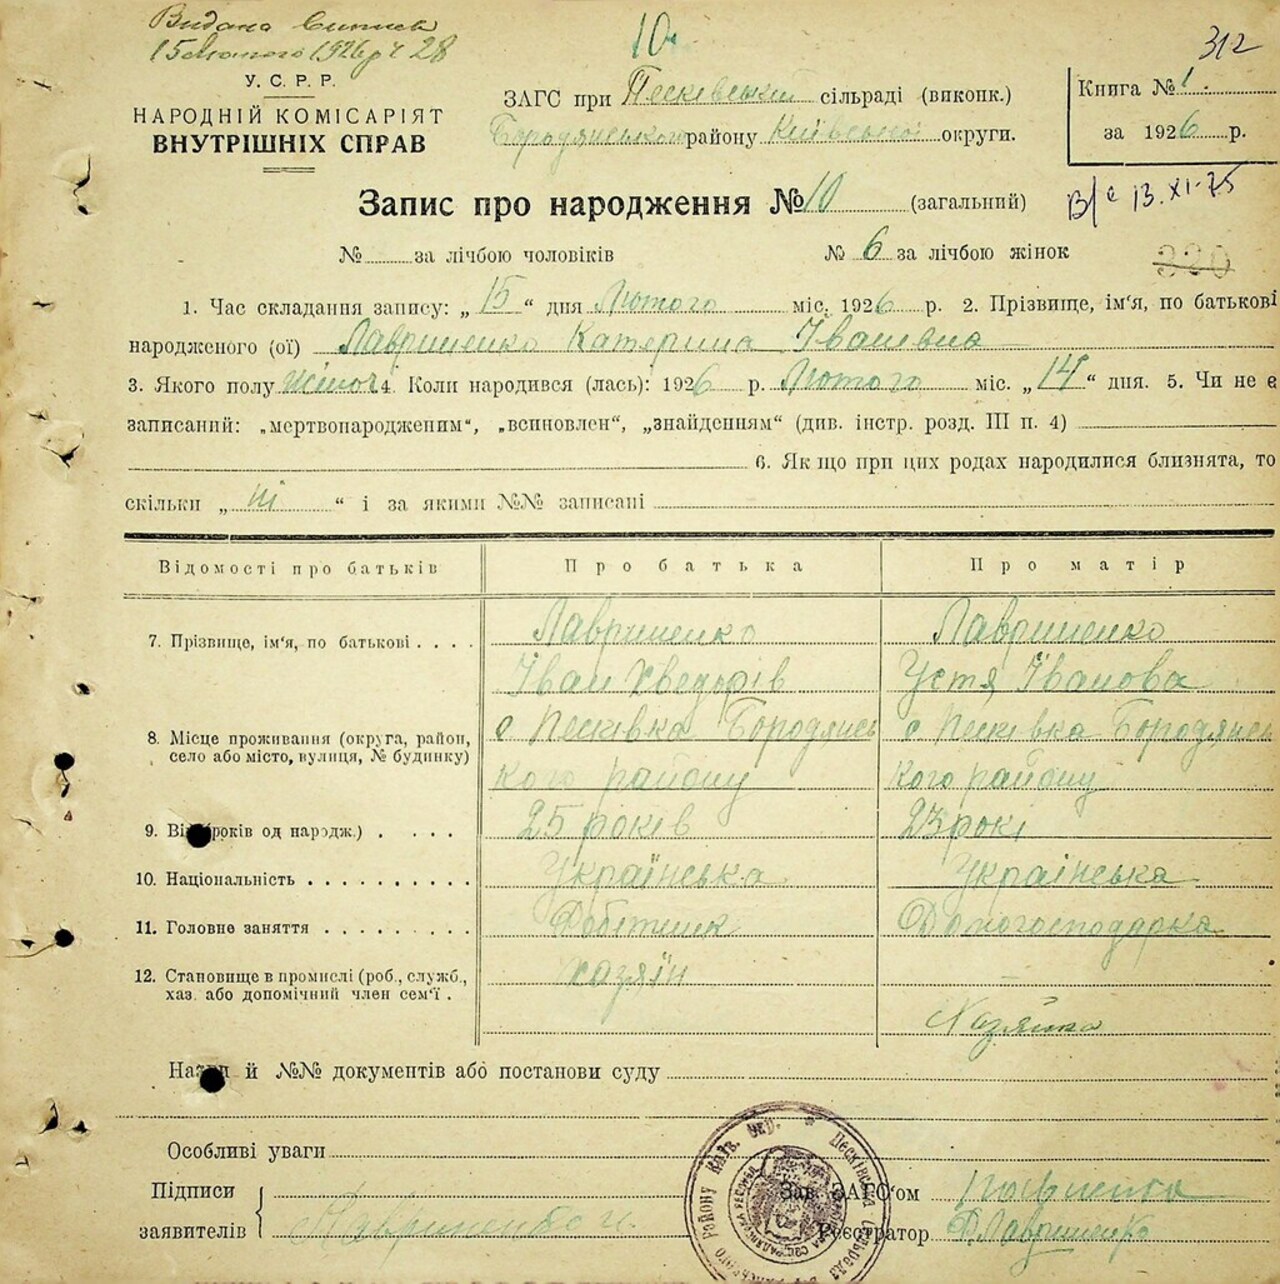 Видано Виписъ
15 Лютого 1926 р ч 28
10.
312
У. С. Р. Р.
НАРОДНІЙ КОМІСАРІЯТ
ВНУТРІШНІХ СПРАВ
ЗАГС при Песківській сільраді (виконк.)
Бородянського району Київської округи.
Книга № 1.
за 1926 р.
Запис про народження № 10 (загальний)
13. XI-75
№ за лічбою чоловіків № 6 за лічбою жінок
320
1. Час складання запису: „ 15 “ дня Лютого міс. 1926 р. 2. Прізвище, ім‘я, по батькові
народженого (ої) Лавриненко Катерина Іванівна
3. Якого полу жіноч 4. Коли народився (лась): 1926 р. Лютого міс. „ 14 “ дня. 5. Чи не є
записаний: „мертвонародженим“, „всиновлен“, „знайденням“ (див. інстр. розд. III п. 4)
6. Як що при цих родах народилися близнята, то
скільки „ ні “ і за якими №№ записані
Відомості про батьків Про батька Про матір
7. Прізвище, ім‘я, по батькові . . . . Лавриненко Лавриненко
Іван Хведорів Устя Іванова
8. Місце проживання (округа, район, с Песківка Бородянсь с Песківка Бородянсь
село або місто, вулиця, № будинку) кого району кого району
9. Вік років од народж.) . . . . 25 років 23 рокі
10. Національність . . . . . . . . . . Українська Украінська
11. Головне заняття . . . . . . . . . Робітник Домогосподарка
12. Становище в промислі (роб., служб., хазяїн —
хаз. або допомічний член сем‘ї . Хазяйка
Назва й №№ документів або постанови суду
Особливі уваги
Підписи Зав. ЗАГС‘ом
заявителів Лавриненко и. Реєстратор Лавриненко